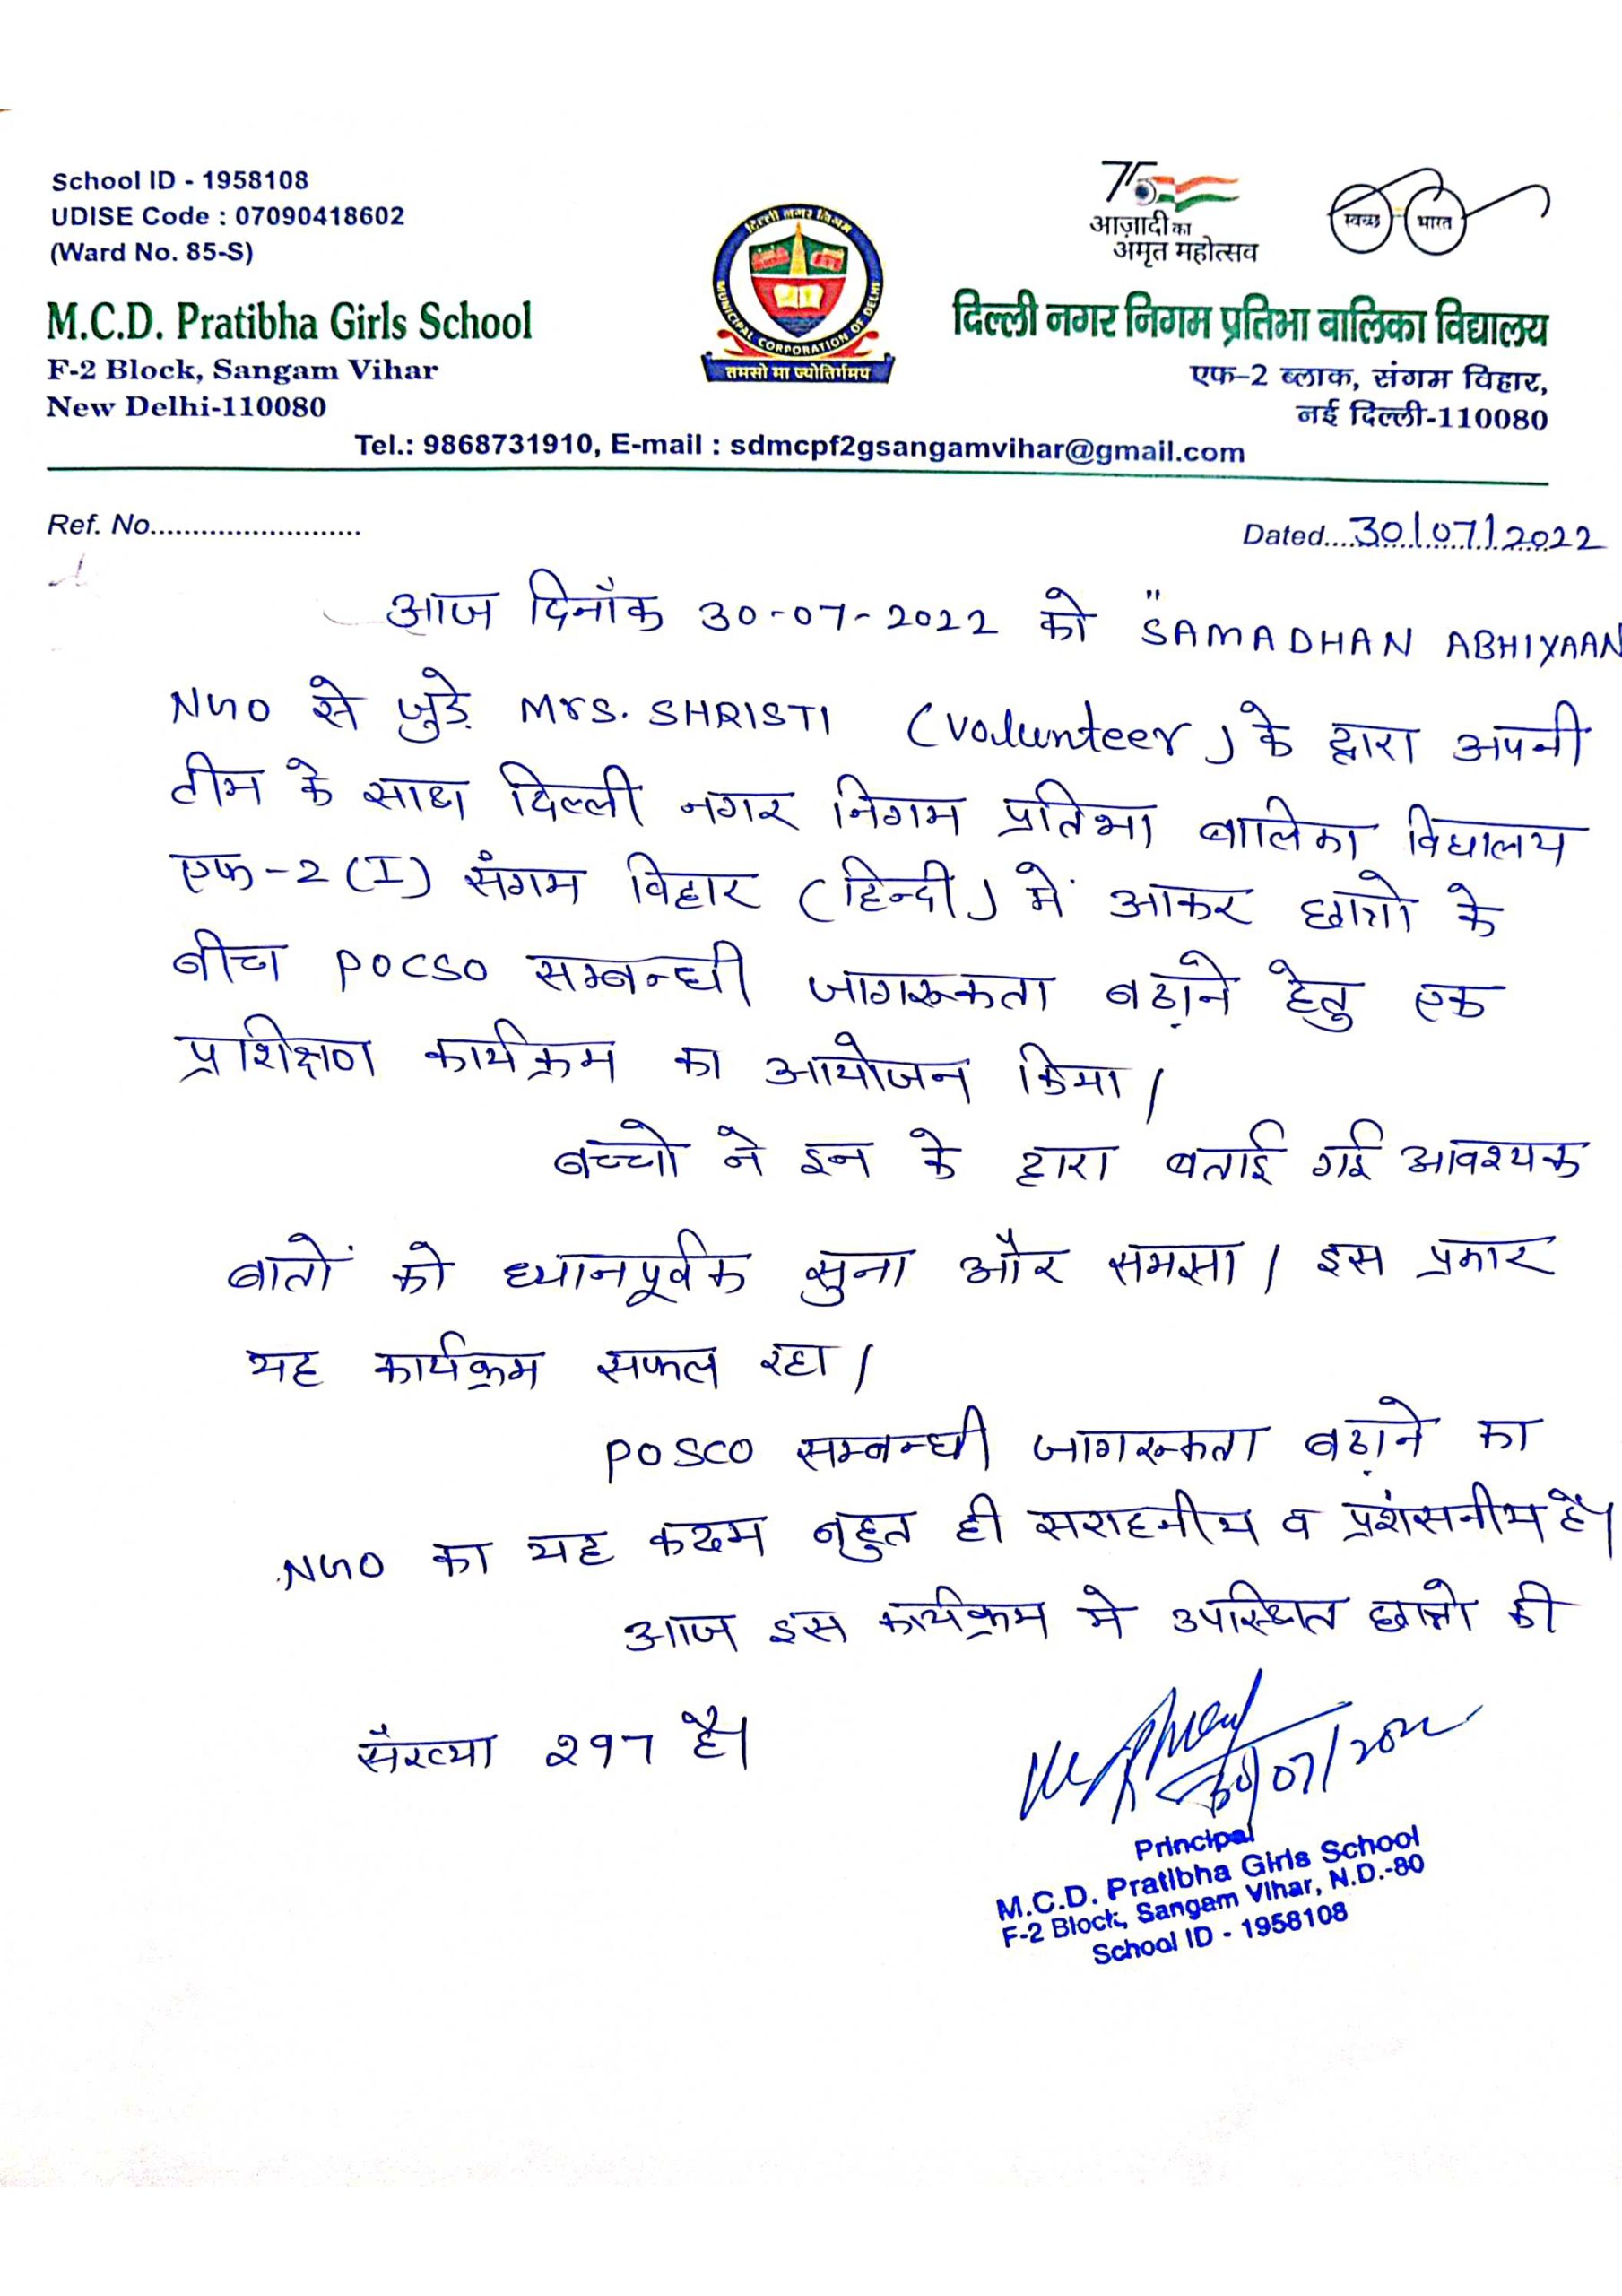 School ID - 1958108
UDISE Code : 07090418602
(Ward No. 85-S)
M.C.D. Pratibha Girls School
F-2 Block, Sangam Vihar
New Delhi-110080
दिल्ली नगर निगम
MUNICIPAL CORPORATION OF DELHI
तमसो मा ज्योतिर्गमय
75
आज़ादी का
अमृत महोत्सव
स्वच्छ भारत
दिल्ली नगर निगम प्रतिभा बालिका विद्यालय
एफ-2 ब्लाक, संगम विहार,
नई दिल्ली-110080
Tel.: 9868731910, E-mail : sdmcpf2gsangamvihar@gmail.com
Ref. No.........................
Dated....30/07/2022
आज दिनाँक 30-07-2022 को "SAMADHAN ABHIYAAN
NGO से जुड़े Mrs. SHRISTI (Volunteer) के द्वारा अपनी
टीम के साथ दिल्ली नगर निगम प्रतिभा बालिका विद्यालय
एफ-2 (I) संगम विहार (हिन्दी) में आकर छात्रो के
बीच POCSO सम्बन्धी जागरूकता बढ़ाने हेतु एक
प्रशिक्षण कार्यक्रम का आयोजन किया।
बच्चो ने इन के द्वारा बताई गई आवश्यक
बातों को ध्यानपूर्वक सुना और समझा। इस प्रकार
यह कार्यक्रम सफल रहा।
POSCO सम्बन्धी जागरूकता बढ़ाने का
NGO का यह कदम बहुत ही सराहनीय व प्रशंसनीय है।
आज इस कार्यक्रम मे उपस्थित छात्रो की
सँख्या 297 है।
30/07/2022
Principal
M.C.D. Pratibha Girls School
F-2 Block, Sangam Vihar, N.D.-80
School ID - 1958108